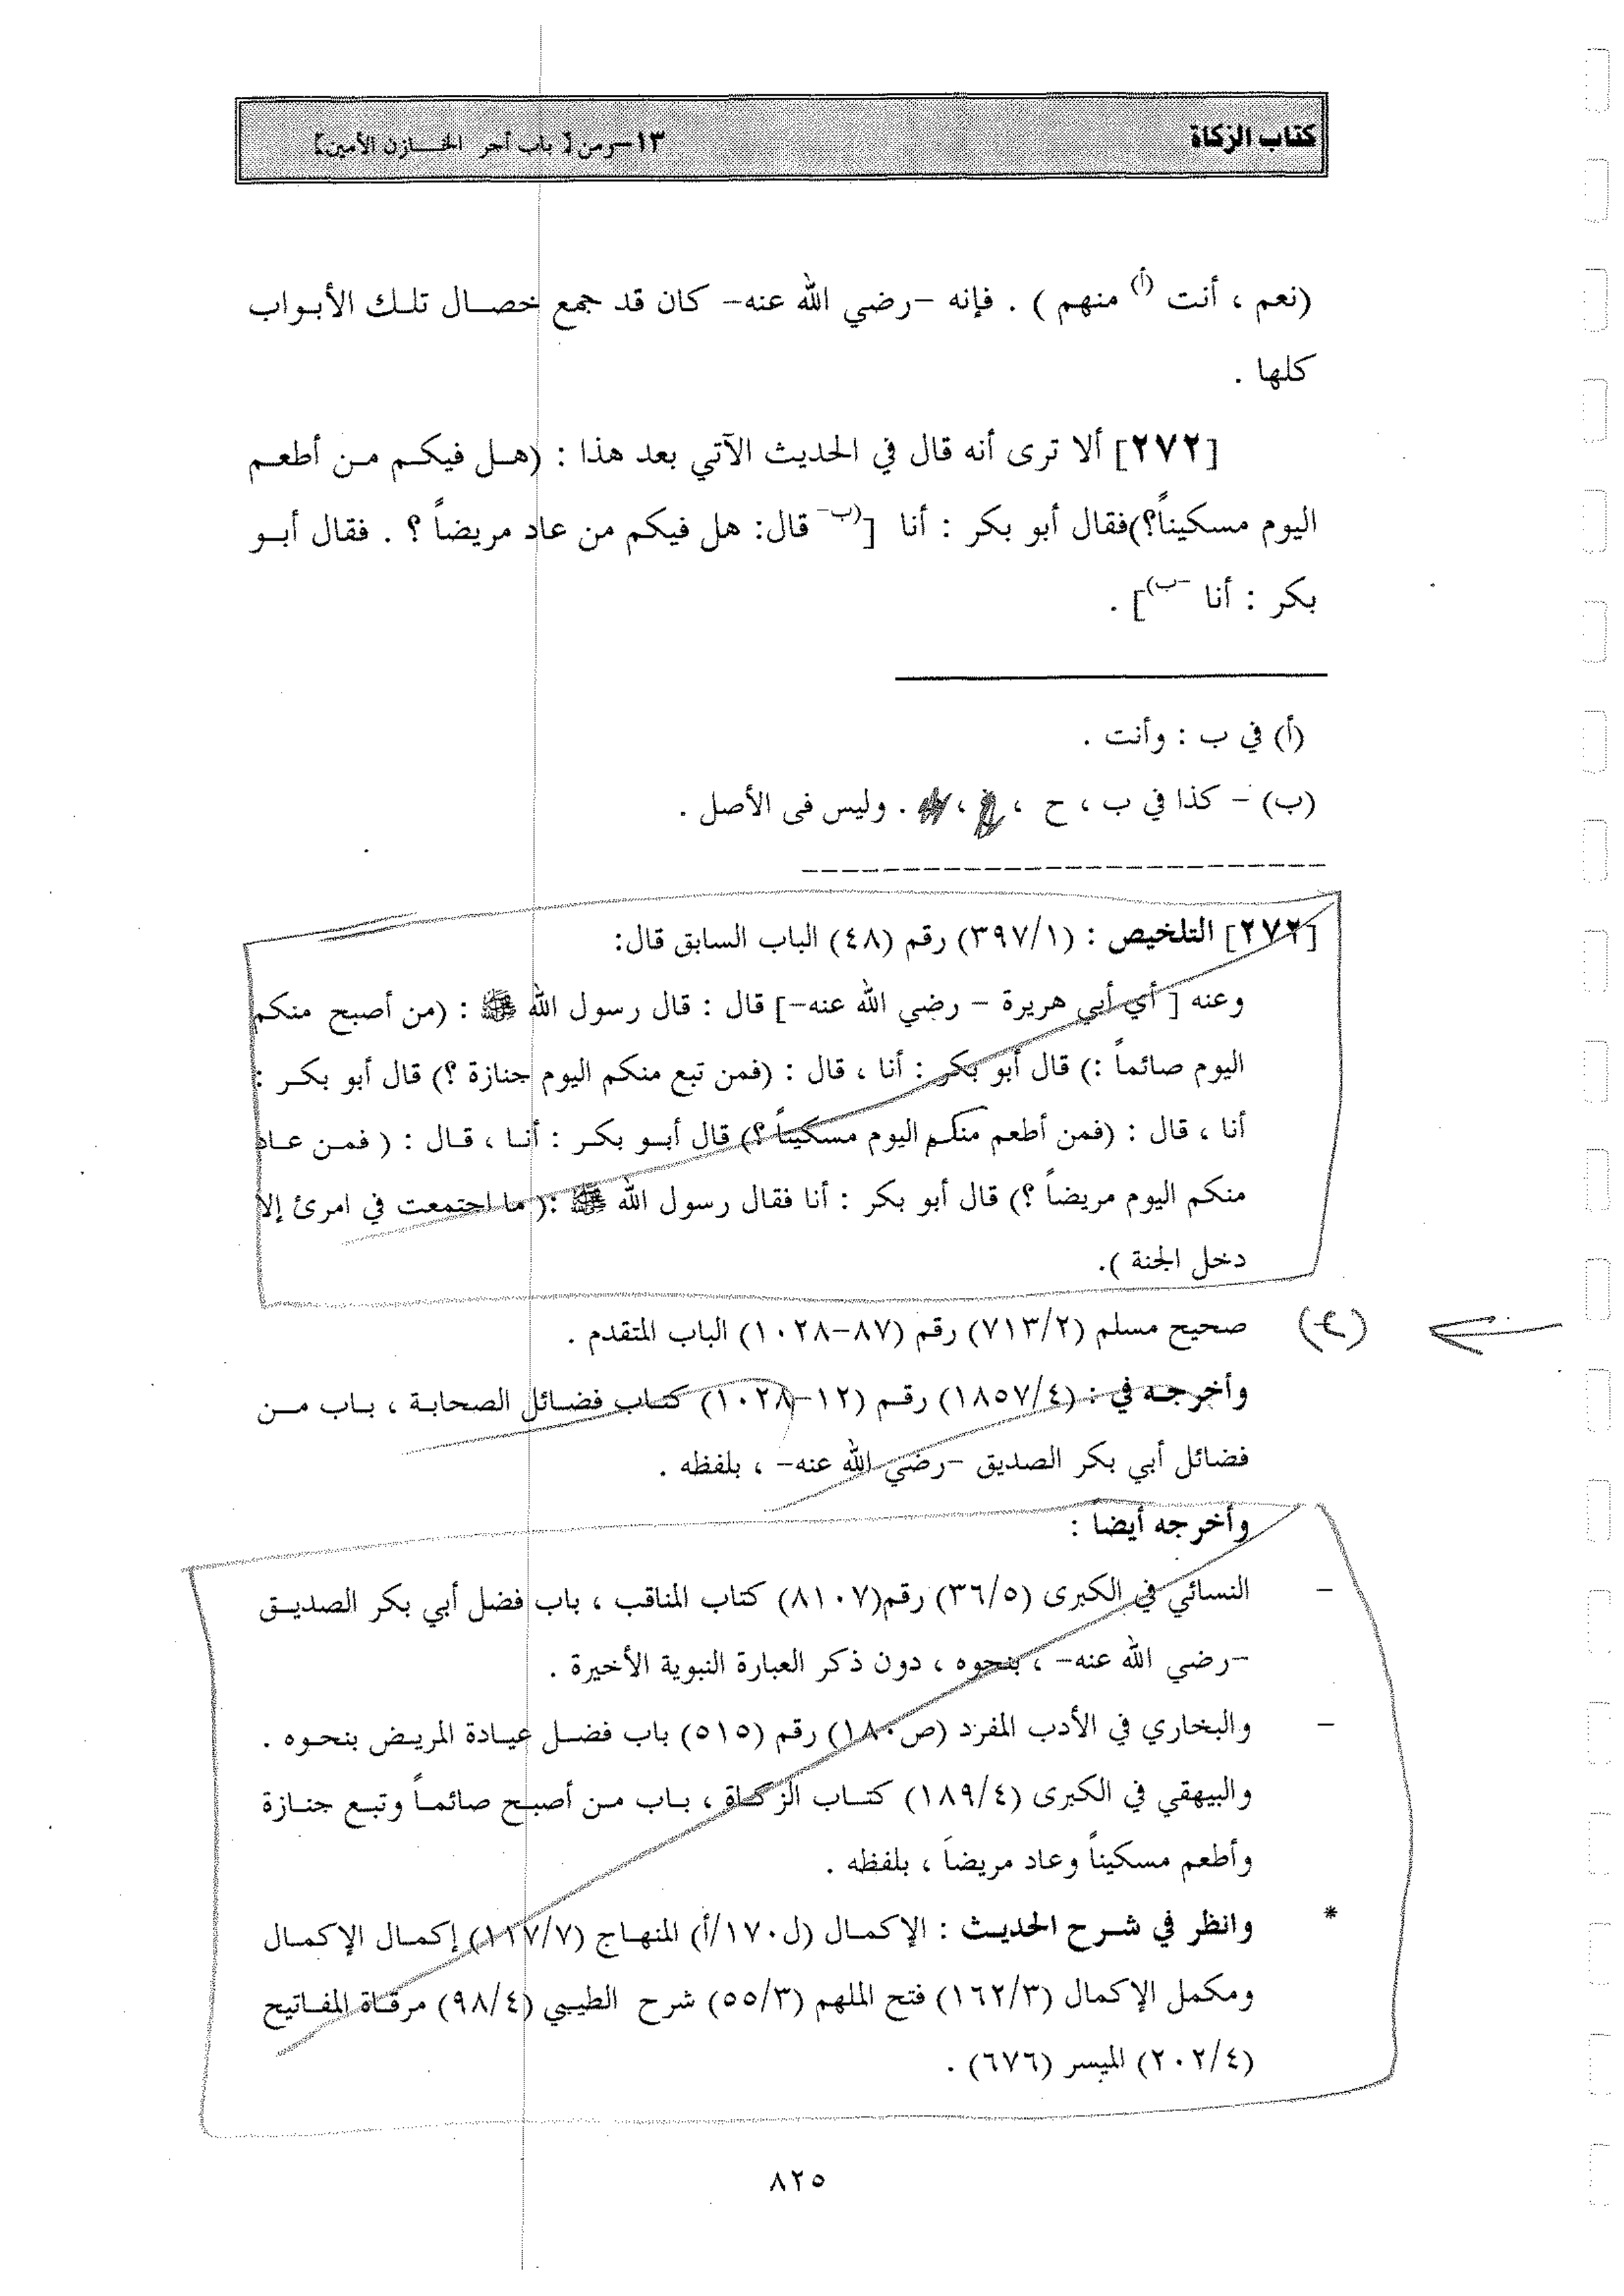 كتاب الزكاة
١٣-ومن [ باب أجر الخــازن الأمين]
(نعم ، أنت (أ) منهم ) . فإنه -رضي الله عنه- كان قد جمع خصــال تلـك الأبـواب
كلها .
[٢٧٢] ألا ترى أنه قال في الحديث الآتي بعد هذا : (هـل فيكـم مـن أطعـم
اليوم مسكيناً؟)فقال أبو بكر : أنا [(ب- قال: هل فيكم من عاد مريضاً ؟ . فقال أبـو
بكر : أنا -ب)] .
(أ) في ب : وأنت .
(ب) - كذا في ب ، ح ، ، . وليس فى الأصل .
[٢٧٢] التلخيص : (٣٩٧/١) رقم (٤٨) الباب السابق قال:
وعنه [ أي أبي هريرة - رضي الله عنه-] قال : قال رسول الله ﷺ : (من أصبح منكم
اليوم صائماً :) قال أبو بكر : أنا ، قال : (فمن تبع منكم اليوم جنازة ؟) قال أبو بكـر :
أنا ، قال : (فمن أطعم منكم اليوم مسكيناً ؟) قال أبـو بكـر : أنـا ، قـال : ( فمـن عـاد
منكم اليوم مريضاً ؟) قال أبو بكر : أنا فقال رسول الله ﷺ :( ما اجتمعت في امرئ إلا
دخل الجنة ).
(٤) صحيح مسلم (٧١٣/٢) رقم (٨٧-١٠٢٨) الباب المتقدم .
وأخرجـه في : (١٨٥٧/٤) رقـم (١٢-١٠٢٨) كتـاب فضـائل الصحابـة ، بـاب مـن
فضائل أبي بكر الصديق -رضي الله عنه- ، بلفظه .
وأخرجه أيضاً :
- النسائي في الكبرى (٣٦/٥) رقم(٨١٠٧) كتاب المناقب ، باب فضل أبي بكر الصديـق
-رضي الله عنه- ، بنحوه ، دون ذكر العبارة النبوية الأخيرة .
- والبخاري في الأدب المفرد (ص١٨٠) رقم (٥١٥) باب فضـل عيـادة المريـض بنحـوه .
والبيهقي في الكبرى (١٨٩/٤) كتـاب الزكـاة ، بـاب مـن أصبـح صائمـاً وتبـع جنـازة
وأطعم مسكيناً وعاد مريضاً ، بلفظه .
* وانظر في شـرح الحديـث : الإكمـال (ل١٧٠/أ) المنهـاج (١١٧/٧) إكمـال الإكمـال
ومكمل الإكمال (١٦٢/٣) فتح الملهم (٥٥/٣) شرح الطيبـي (٩٨/٤) مرقـاة المفـاتيح
(٢٠٢/٤) الميسر (٦٧٦) .
٨٢٥